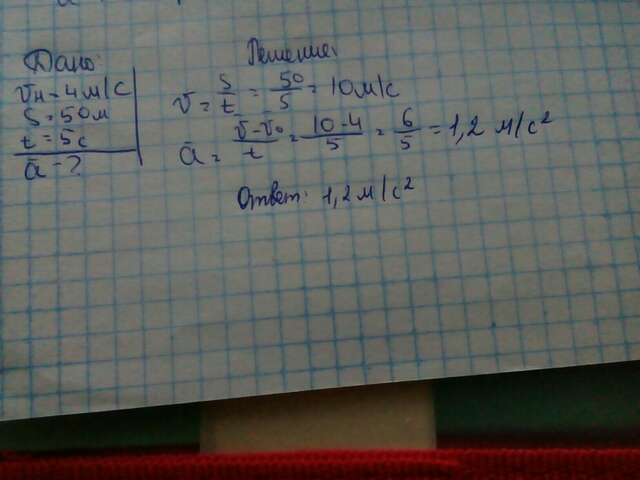 Дано:
Vн - 4 м/с
S = 50 м
t = 5 с
a̅ - ?
Решение:
V = S/t = 50/5 = 10 м/с
a̅ = V̅-V₀/t = 10-4/5 = 6/5 = 1,2 м/с²
Ответ: 1,2 м/с²